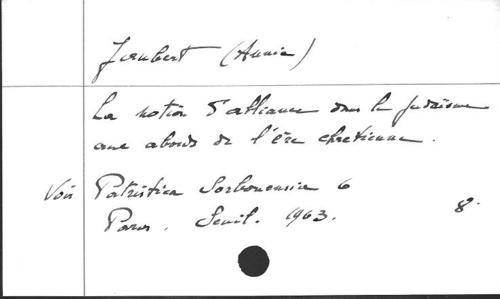 Jaubert (Annie)
La notion d'alliance dans le judaïsme
aux abords de l'ère chrétienne.
Voir Patristica Sorbonensia 6
Paris. Seuil. 1963. 8.